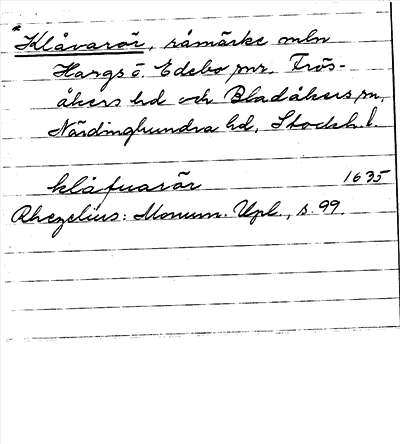 *Klåvarör, råmärke mln
Hargs o. Edebo pnr. Frös-
åkers hd och Bladåkers pn,
Närdinghundra hd, Stockh. l.
klåfuarör 1635
Rhezelius: Monum. Upl., s. 99.